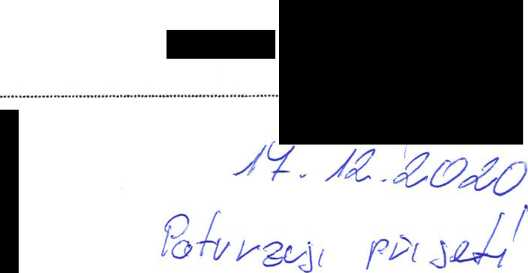 17. 12. 2020
Potvrzuji přijetí